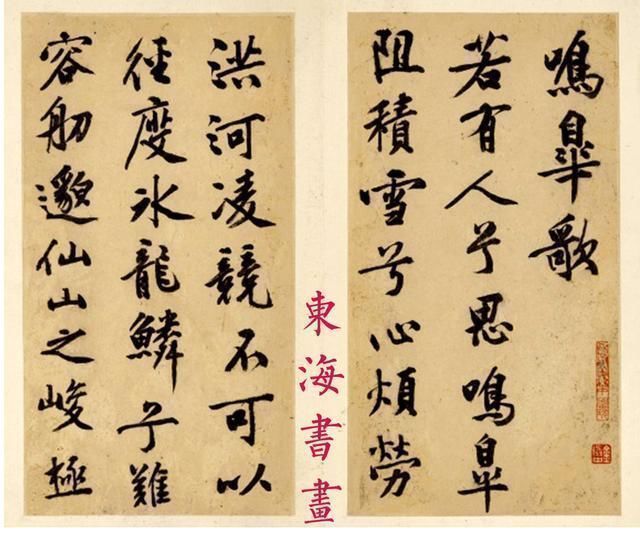 鳴皋歌
若有人兮思鳴皋
阻積雪兮心煩勞
洪河凌競不可以
徑度冰龍鱗兮難
容舠邈仙山之峻極
東海書畫